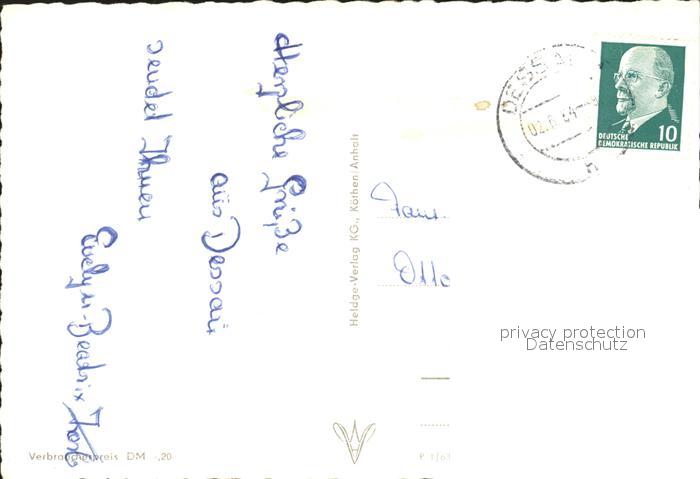 Herzliche Grüße
aus Dessau
sendet Ihnen
Evelyn-Beatrix
Fam.
Otto
Heldge-Verlag KG., Köthen/Anhalt
Verbraucherpreis DM -,20
DESSAU
10
DEUTSCHE
DEMOKRATISCHE REPUBLIK
privacy protection
Datenschutz